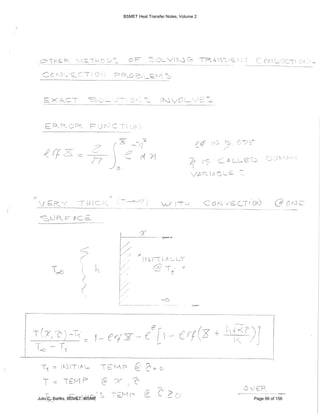 BSMET Heat Transfer Notes, Volume 2
OTHER METHODS OF SOLVING TRANSIENT CONDUCTION-
CONVECTION PROBLEMS
EXACT SOLUTIONS INVOLVE
ERROR FUNCTION
erf Z = 2/π ∫₀^Z e^-η² dη
η IS CALLED DUMMY
VARIABLE
"VERY THICK" WITH CONVECTION @ ONE
SURFACE
x
T∞ h "INITIALLY
@ T₁"
T(x, τ) - T₁ / T∞ - T₁ = 1 - erf Z - e [1 - erf (Z + h√ατ / k)]
T₁ = INITIAL TEMP @ τ=0
T = TEMP @ x, τ
OVER
TEMP @ τ ≥ 0
Julio C. Banks, BSMET, MSME Page 86 of 156